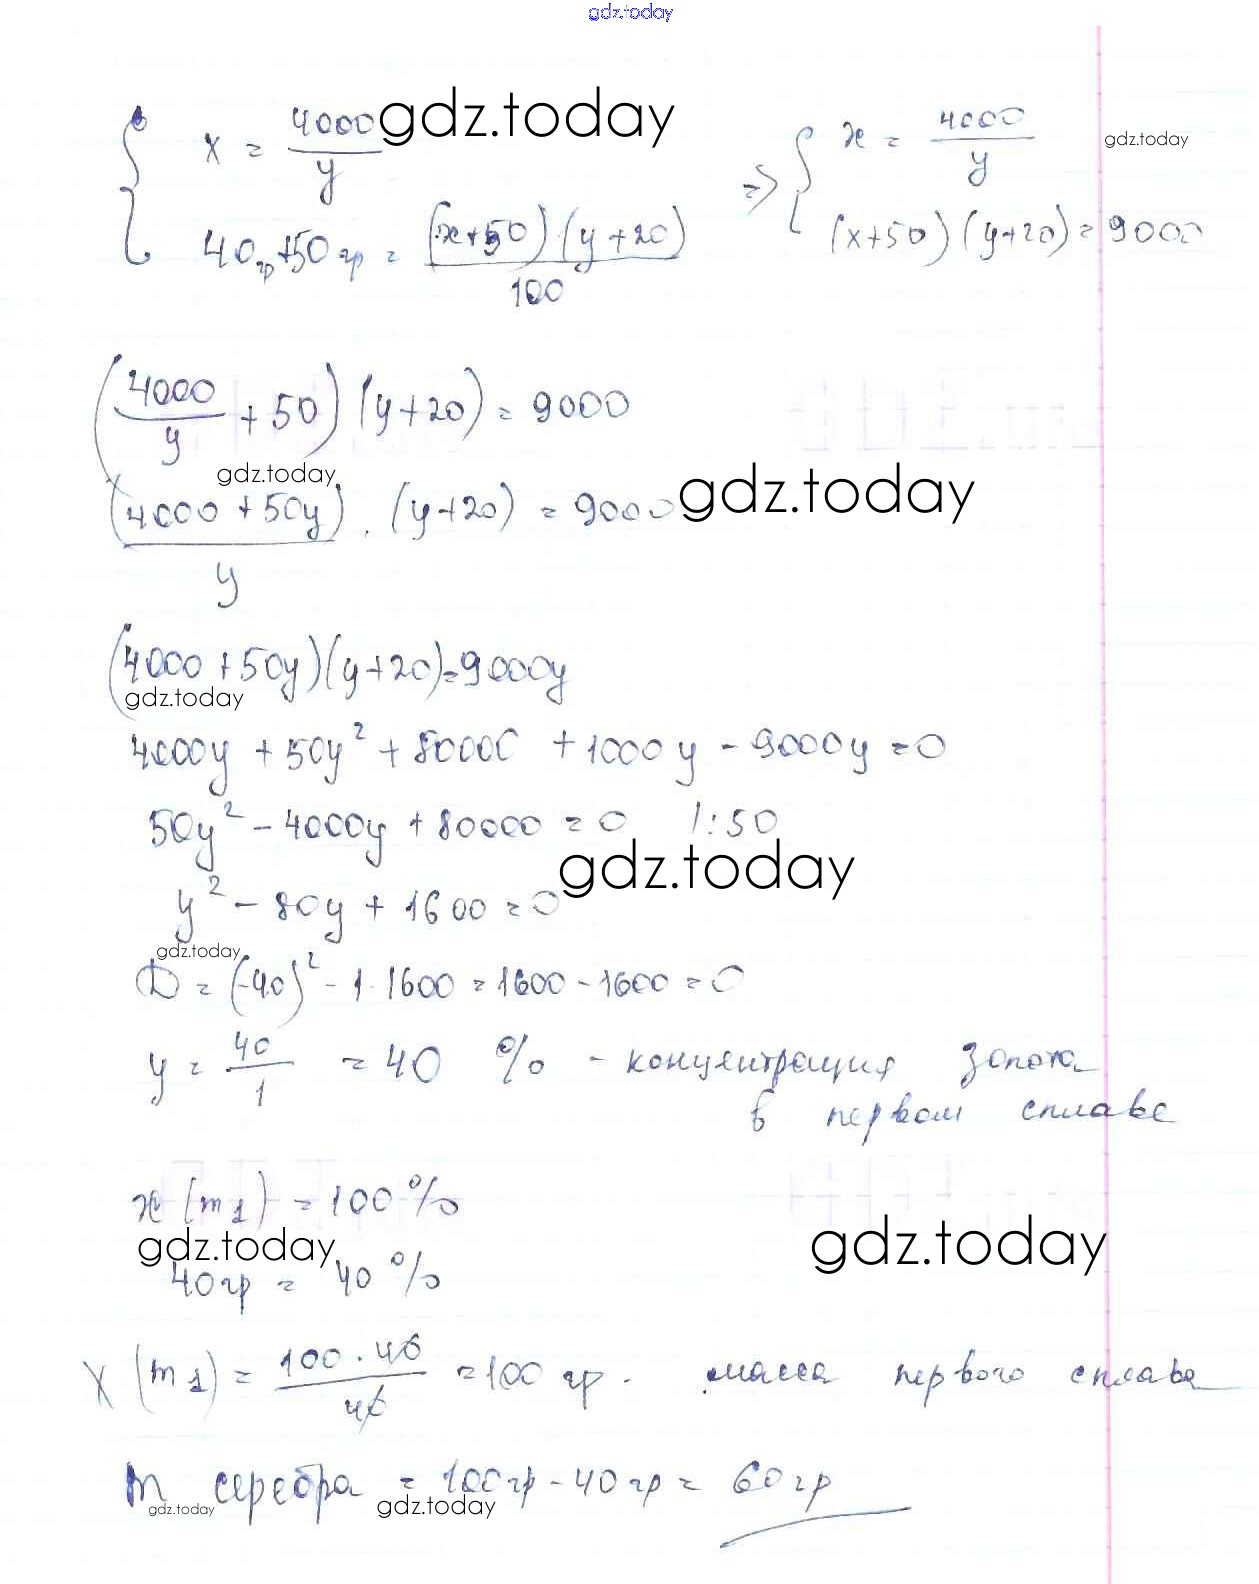 gdz.today
x = 4000/y gdz.today => x = 4000/y gdz.today
40гр+50гр = (x+50)(y+20)/100 (x+50)(y+20) = 9000
(4000/y + 50)(y+20) = 9000
gdz.today
(4000+50y)/y · (y+20) = 9000 gdz.today
(4000+50y)(y+20)=9000y
gdz.today
4000y + 50y² + 80000 + 1000y - 9000y = 0
50y² - 4000y + 80000 = 0 |:50
gdz.today
y² - 80y + 1600 = 0
gdz.today
D = (-40)² - 1·1600 = 1600 - 1600 = 0
y = 40/1 = 40 % - концентрация золота
в первом сплаве
x (m1) = 100%
gdz.today gdz.today
40гр = 40%
x (m1) = 100·40/40 = 100 гр. масса первого сплава
m серебра = 100гр - 40гр = 60гр
gdz.today gdz.today